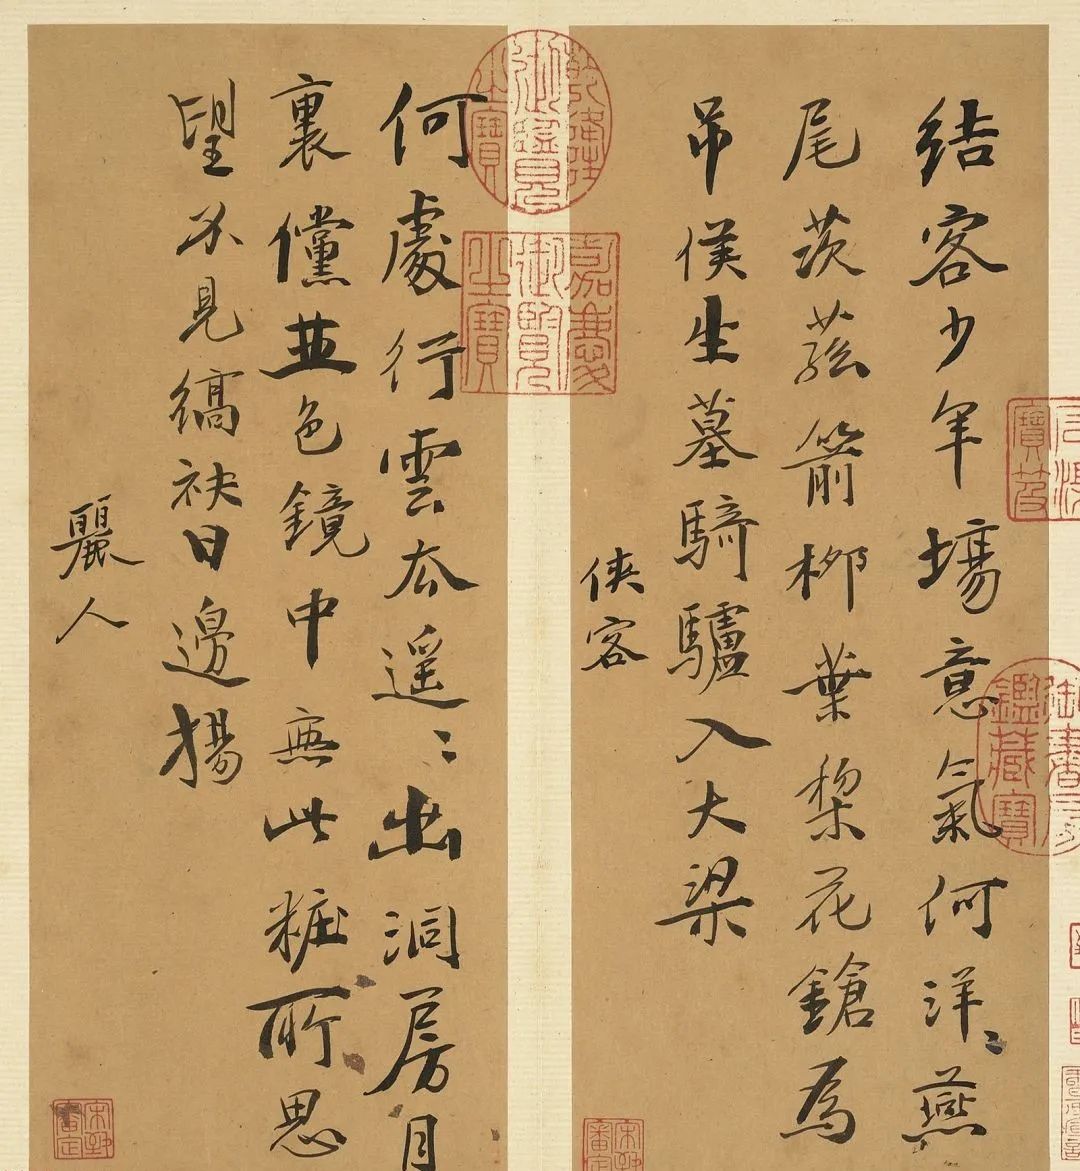 結客少年場意氣何洋〻燕
尾茨菰箭柳葉梨花鎗為
弔侯生墓騎驢入大梁
俠客
何處行雲去遥〻出洞房月
裏儻並色鏡中無此粧所思
望不見縞袂日邊揚
麗人
乾隆御覽之寶
嘉慶御覽之寶
石渠寶笈
御書房鑑藏寶
宋犖審定
宋犖審定